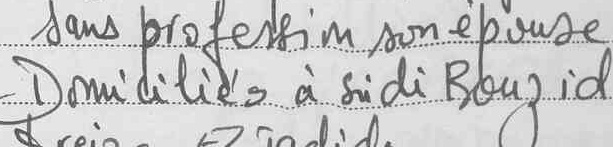 sans profession son épouse
Domiciliés à sidi Bouzid